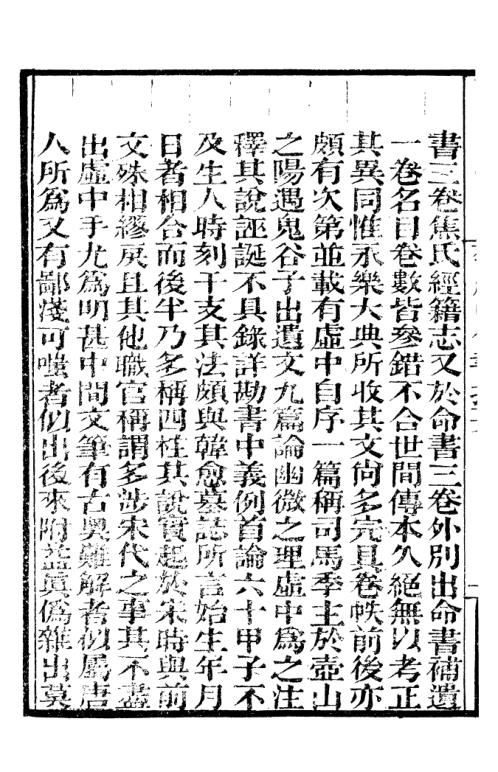 書三卷焦氏經籍志又於命書三卷外別出命書補遺
一卷名目卷數皆參錯不合世間傳本久絕無以考正
其異同惟永樂大典所收其文尙多完具卷帙前後亦
頗有次第並載有虛中自序一篇稱司馬季主於壺山
之陽遇鬼谷子出遺文九篇論幽微之理虛中爲之注
釋其說誣誕不具錄詳勘書中義例首論六十甲子不
及生人時刻干支其法頗與韓愈墓誌所言始生年月
日者相合而後半乃多稱四柱其說實起於宋時與前
文殊相繆戾且其他職官稱謂多涉宋代之事其不盡
出虛中手尤爲明甚中間文筆有古奧難解者似屬唐
人所爲又有鄙淺可嗤者似出後來附益眞僞雜出莫